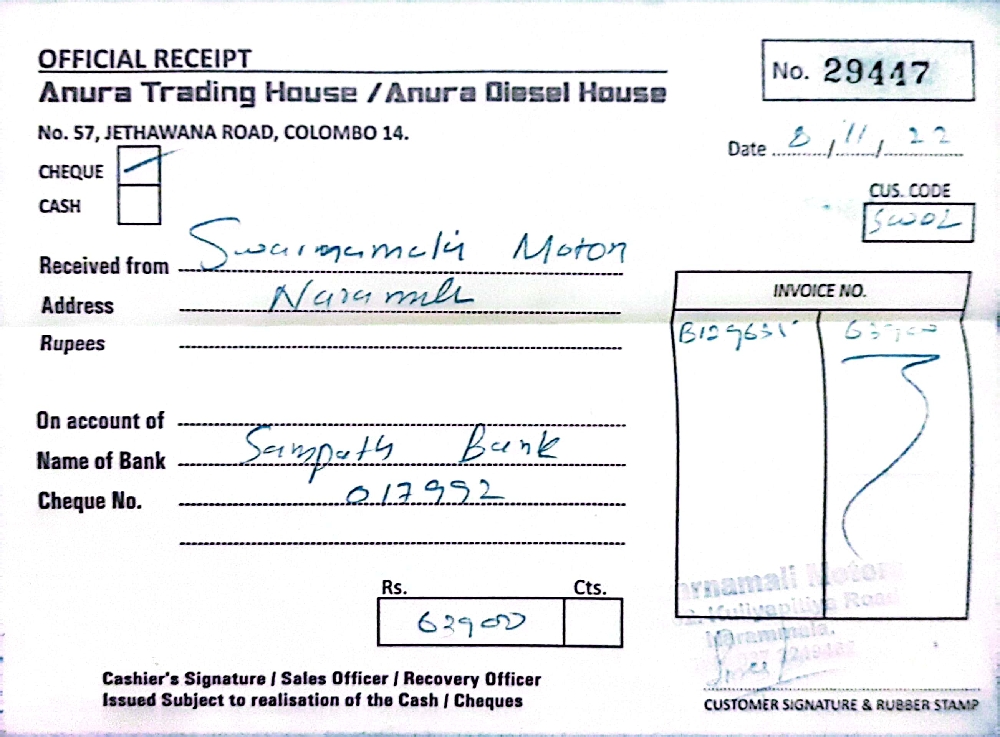 OFFICIAL RECEIPT
No. 29447
Anura Trading House / Anura Diesel House
No. 57, JETHAWANA ROAD, COLOMBO 14.
Date 8/11/22
CHEQUE
CASH
CUS. CODE
Received from Swarnamali Motors
Address Narammala
INVOICE NO.
Rupees
B129631 63900
On account of
Name of Bank Sampath Bank
Cheque No. 017992
Rs. Cts.
63900
arnamali Motors
Kuliyapitiya Road
Narammala.
Cashier's Signature / Sales Officer / Recovery Officer
Issued Subject to realisation of the Cash / Cheques
CUSTOMER SIGNATURE & RUBBER STAMP